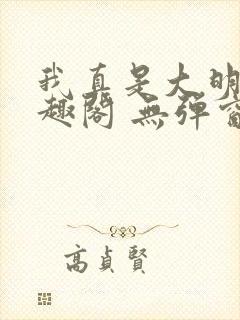 我真是大明
趣阁 無弹窗
高貞賢